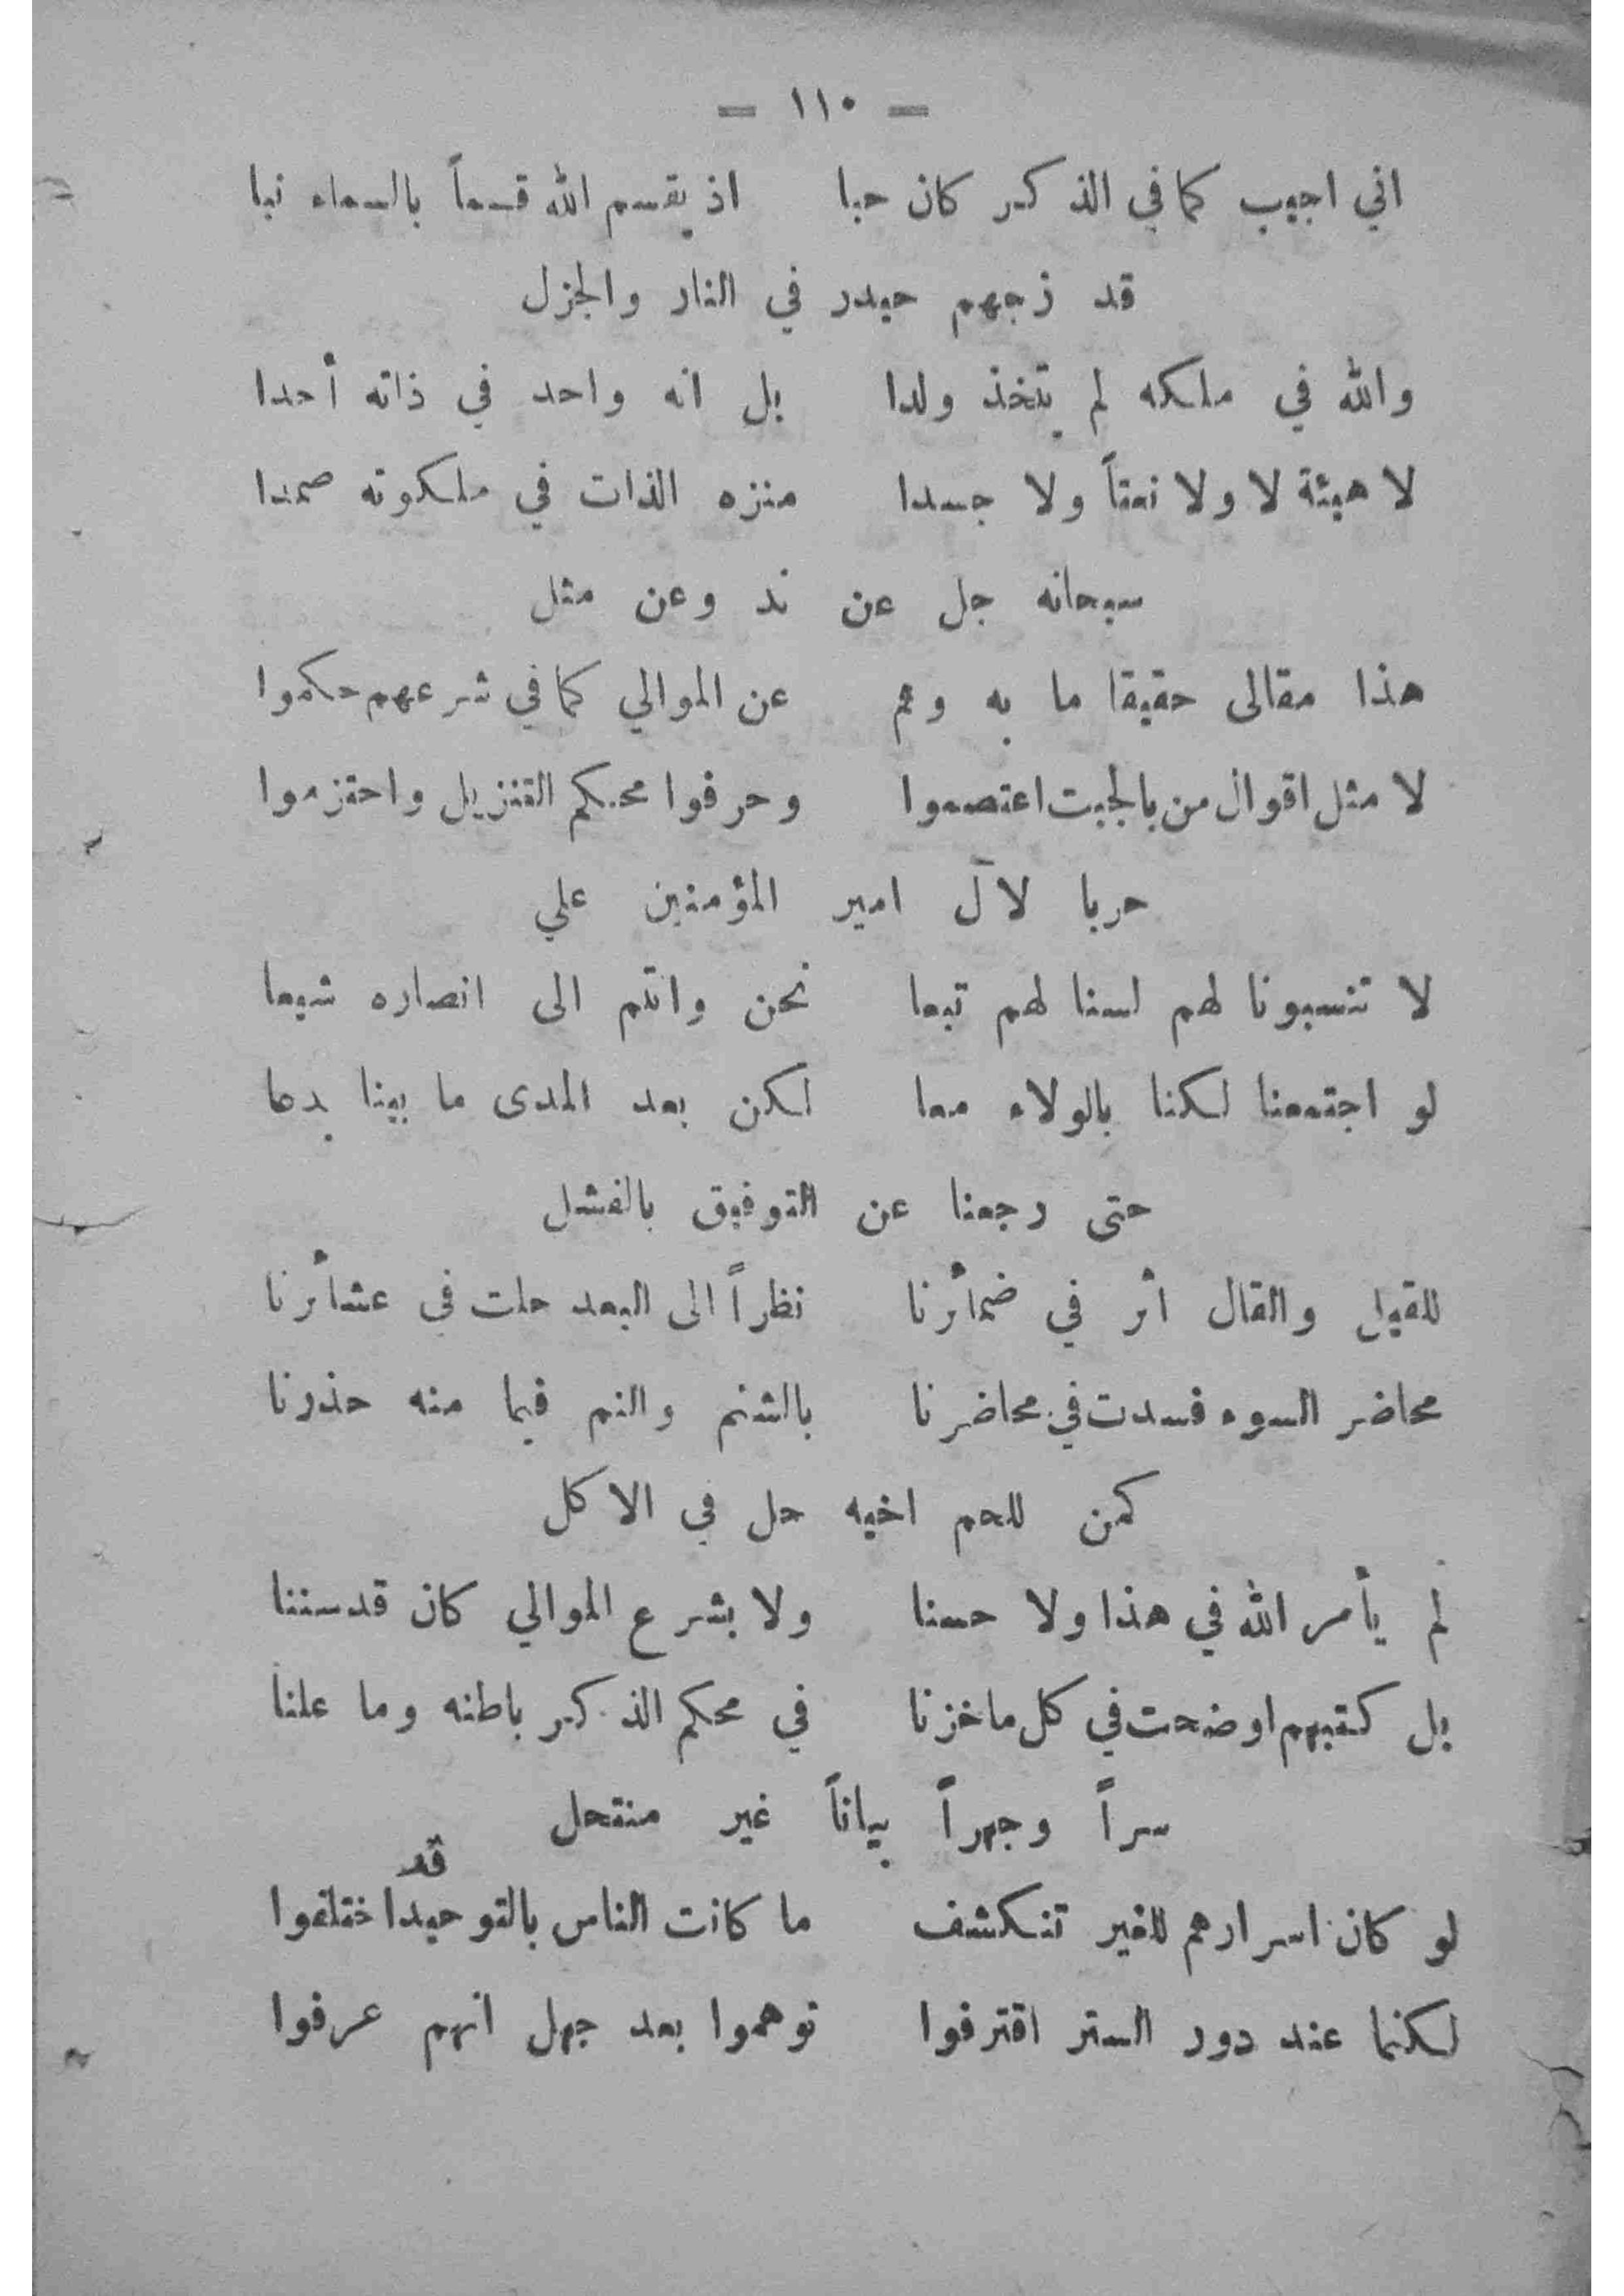 — ١١٠ —
اني اجيب كما في الذكر كان حبا اذ يقسم الله قسماً بالسماء نبا
قد زجهم حيدر في النار والجزل
والله في ملكه لم يتخذ ولدا بل انه واحد في ذاته أحدا
لا هيئة لا ولا نعتاً ولا جسدا منزه الذات في ملكوته صمدا
سبحانه جل عن ند وعن مثل
هذا مقالى حقيقا ما به وهم عن الموالي كما في شرعهم حكموا
لا مثل اقوال من بالجبت اعتصموا وحرفوا محكم التنزيل واحتزموا
حربا لآل امير المؤمنين علي
لا تنسبونا لهم لسنا لهم تبعا نحن وانتم الى انصاره شيعا
لو اجتمعنا لكنا بالولاء معا لكن بعد المدى ما بيننا بدعا
حتى رجعنا عن التوفيق بالفشل
للقيل والقال أثر في ضمأئرنا نظراً الى البعد حلت في عشأئرنا
محاضر السوء فسدت في محاضرنا بالشتم والنم فيما منه حذرنا
كمن للحم اخيه حل في الاكل
لم يأمر الله في هذا ولا حسنا ولا بشرع الموالي كان قد سننا
بل كتبهم اوضحت في كل ما خزنا في محكم الذكر باطنه وما علنا
سراً وجهراً بياناً غير منتحل
لو كان اسرارهم للغير تنكشف ما كانت الناس بالتوحيد قد اختلفوا
لكنما عند دور الستر اقترفوا توهموا بعد جهل انهم عرفوا